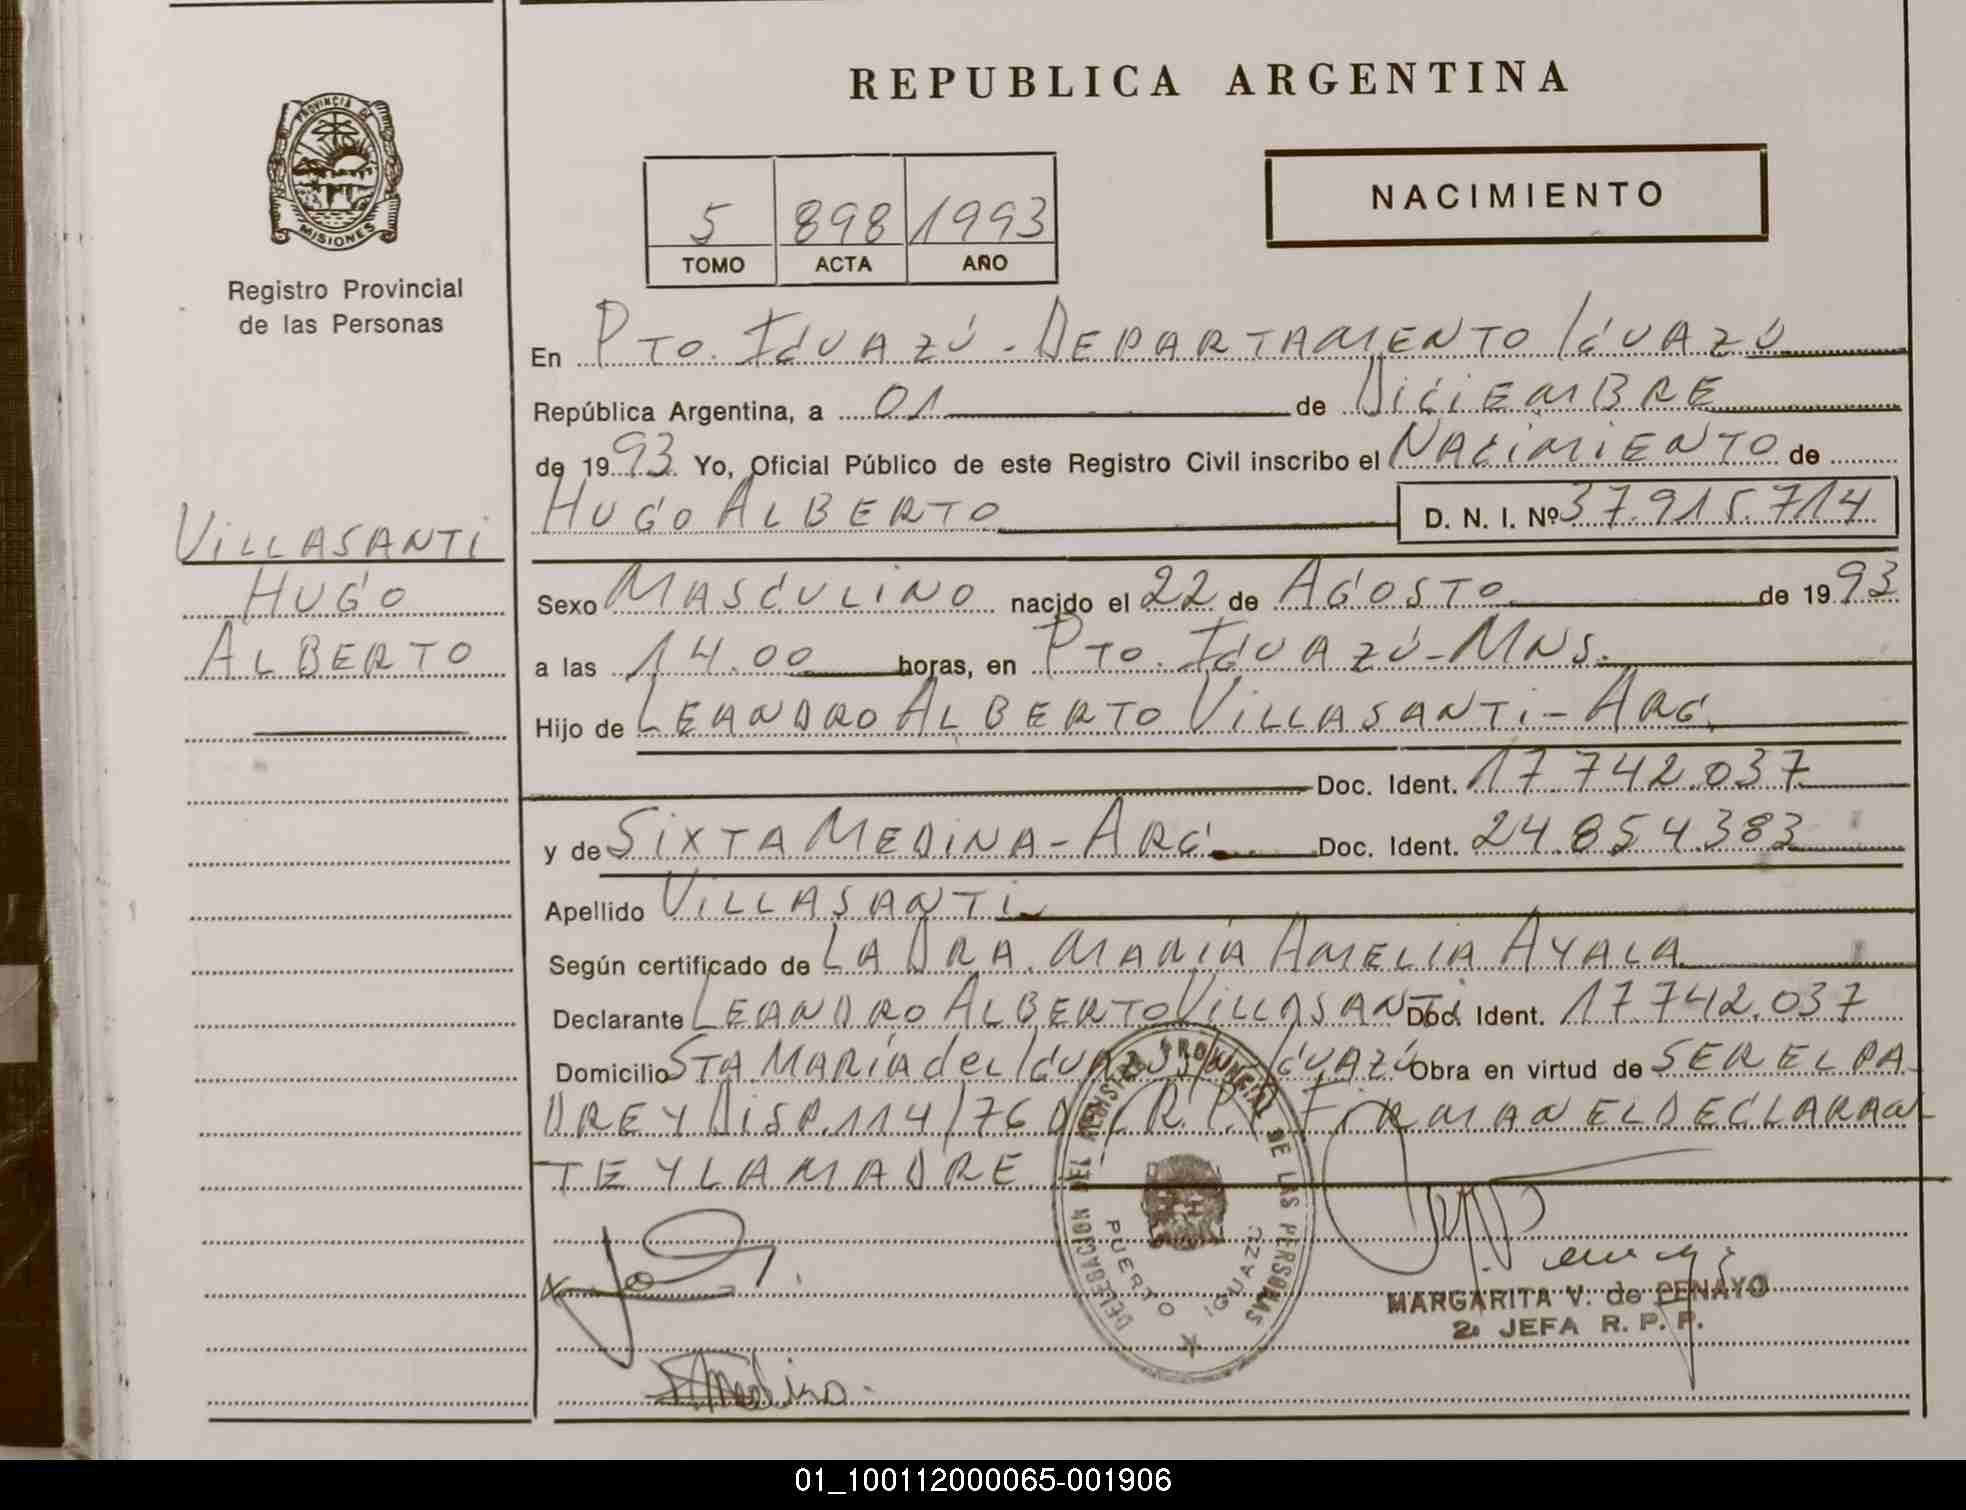 REPUBLICA ARGENTINA
PROVINCIA DE
MISIONES
Registro Provincial
de las Personas
NACIMIENTO
5 898 1993
TOMO ACTA AÑO
En PTO. IGUAZÚ - DEPARTAMENTO IGUAZÚ
República Argentina, a 01 de DICIEMBRE
de 1993 Yo, Oficial Público de este Registro Civil inscribo el NACIMIENTO de
HUGO ALBERTO D. N. I. Nº 37.915.714
VILLASANTI
HUGO
ALBERTO
Sexo MASCULINO nacido el 22 de AGOSTO de 1993
a las 14.00 horas, en PTO. IGUAZÚ - MNS.
Hijo de LEANDRO ALBERTO VILLASANTI - ARG.
Doc. Ident. 17.742.037
y de SIXTA MEDINA - ARG. Doc. Ident. 24.854.383
Apellido VILLASANTI
Según certificado de LA DRA. MARIA AMELIA AYALA
Declarante LEANDRO ALBERTO VILLASANTI Doc. Ident. 17.742.037
Domicilio STA MARÍA del IGUAZÚ IGUAZÚ Obra en virtud de SER EL PA
DRE Y DISP. 114/76 FIRMAN EL DECLARAN-
TE Y LA MADRE
DELEGACION DEL REGISTRO PROVINCIAL DE LAS PERSONAS
PUERTO IGUAZU
MARGARITA V. de PENAYO
2º JEFA R. P. P.
Medina
01_100112000065-001906